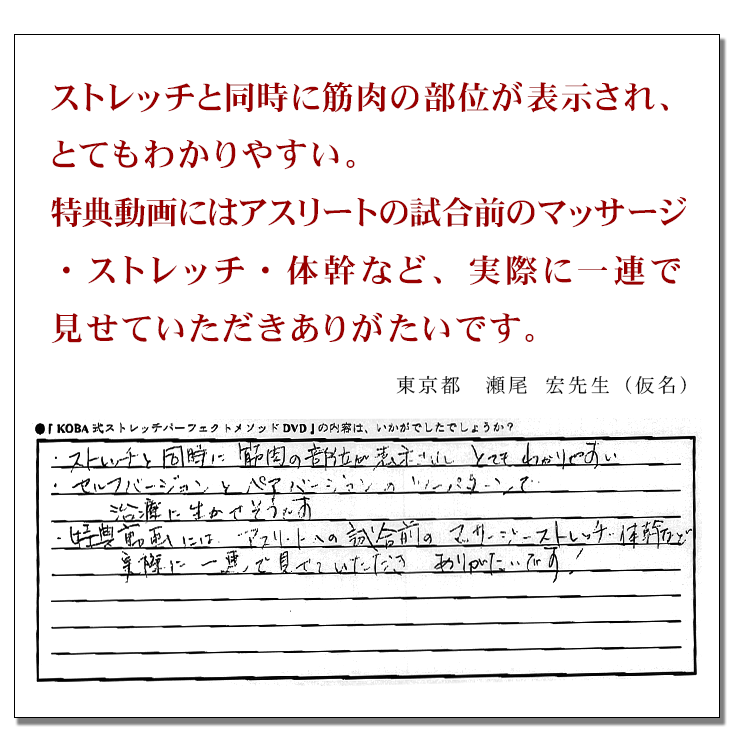 ストレッチと同時に筋肉の部位が表示され、
とてもわかりやすい。
特典動画にはアスリートの試合前のマッサージ
・ストレッチ・体幹など、実際に一連で
見せていただきありがたいです。
東京都　瀬尾 宏先生（仮名）
●『KOBA式ストレッチパーフェクトメソッドDVD』の内容は、いかがでしたでしょうか？
・ストレッチと同時に筋肉の部位が表示され とてもわかりやすい
・セルフバージョンとペアバージョンのツーパターンで
治療に生かせそうです
・特典動画には アスリートへの試合前のマッサージーストレッチ・体幹など
実際に一連で見せていただき ありがたいです！